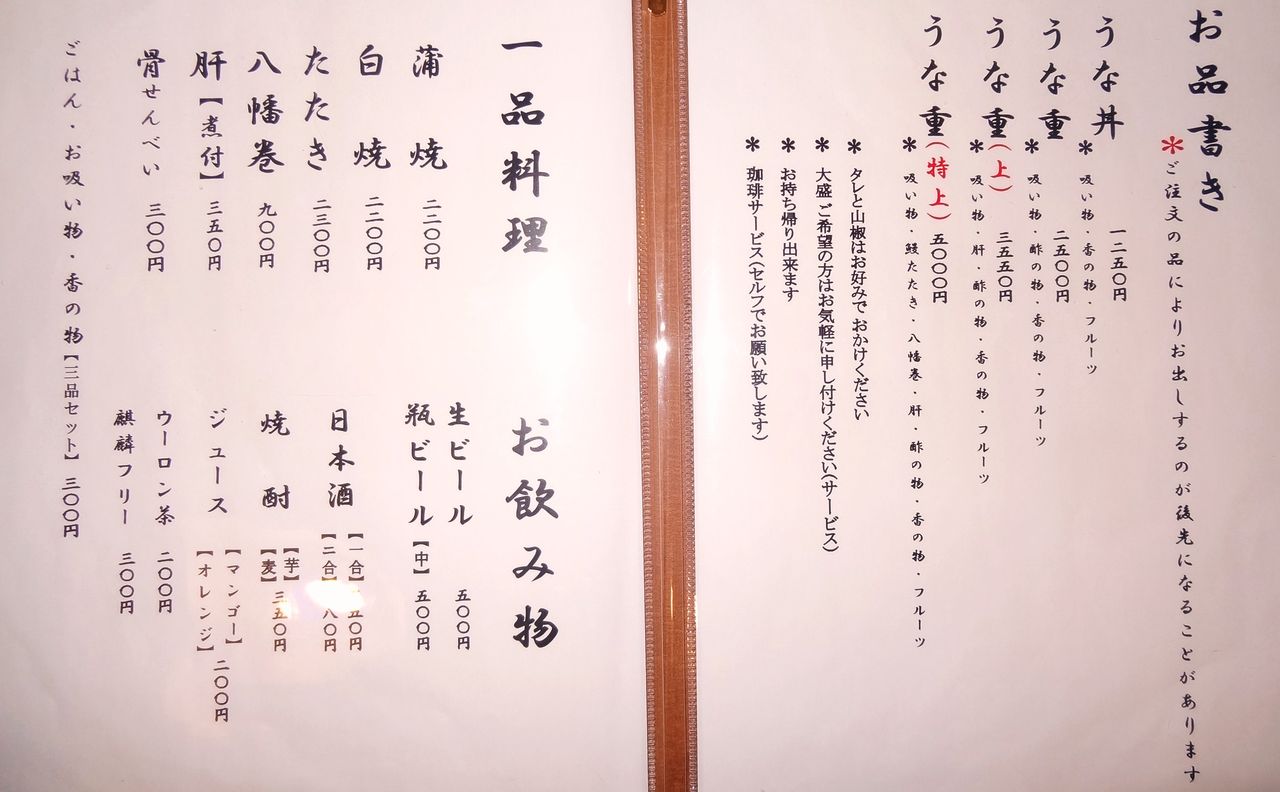 お品書き
＊ご注文の品によりお出しするのが後先になることがあります
うな丼 一二五〇円
＊吸い物・香の物・フルーツ
うな重 二五〇〇円
＊吸い物・酢の物・香の物・フルーツ
うな重（上） 三五五〇円
＊吸い物・肝・酢の物・香の物・フルーツ
うな重（特上） 五〇〇〇円
＊吸い物・鰻たたき・八幡巻・肝・酢の物・香の物・フルーツ
＊タレと山椒はお好みで おかけください
＊大盛 ご希望の方はお気軽に申し付けください(サービス)
＊お持ち帰り出来ます
＊珈琲サービス(セルフでお願い致します)
一品料理
蒲焼 二二〇〇円
白焼 二二〇〇円
たたき 二三〇〇円
八幡巻 九〇〇円
肝【煮付】 三五〇円
骨せんべい 三〇〇円
ごはん・お吸い物・香の物【三品セット】 三〇〇円
お飲み物
生ビール 五〇〇円
瓶ビール【中】 五〇〇円
日本酒
【一合】五〇円
【二合】八〇円
焼酎
【芋】
【麦】三五〇円
ジュース
【マンゴー】
【オレンジ】 二〇〇円
ウーロン茶 二〇〇円
麒麟フリー 三〇〇円